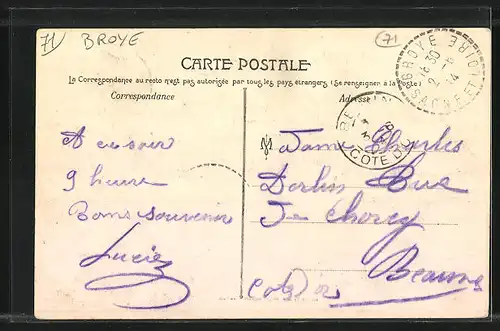 71 BROYE
71
CARTE POSTALE
La Correspondance au recto n'est pas autorisée par tous les pays étrangers (Se renseigner à la Poste)
Correspondance
Adresse
BROYE
6 30
SAÔNE ET LOIRE
COTE D'OR
A ce soir
9 heure
Bons souvenir
Lucie
Madame Charles
Rue
Chorey
Beaune
Cote d'or